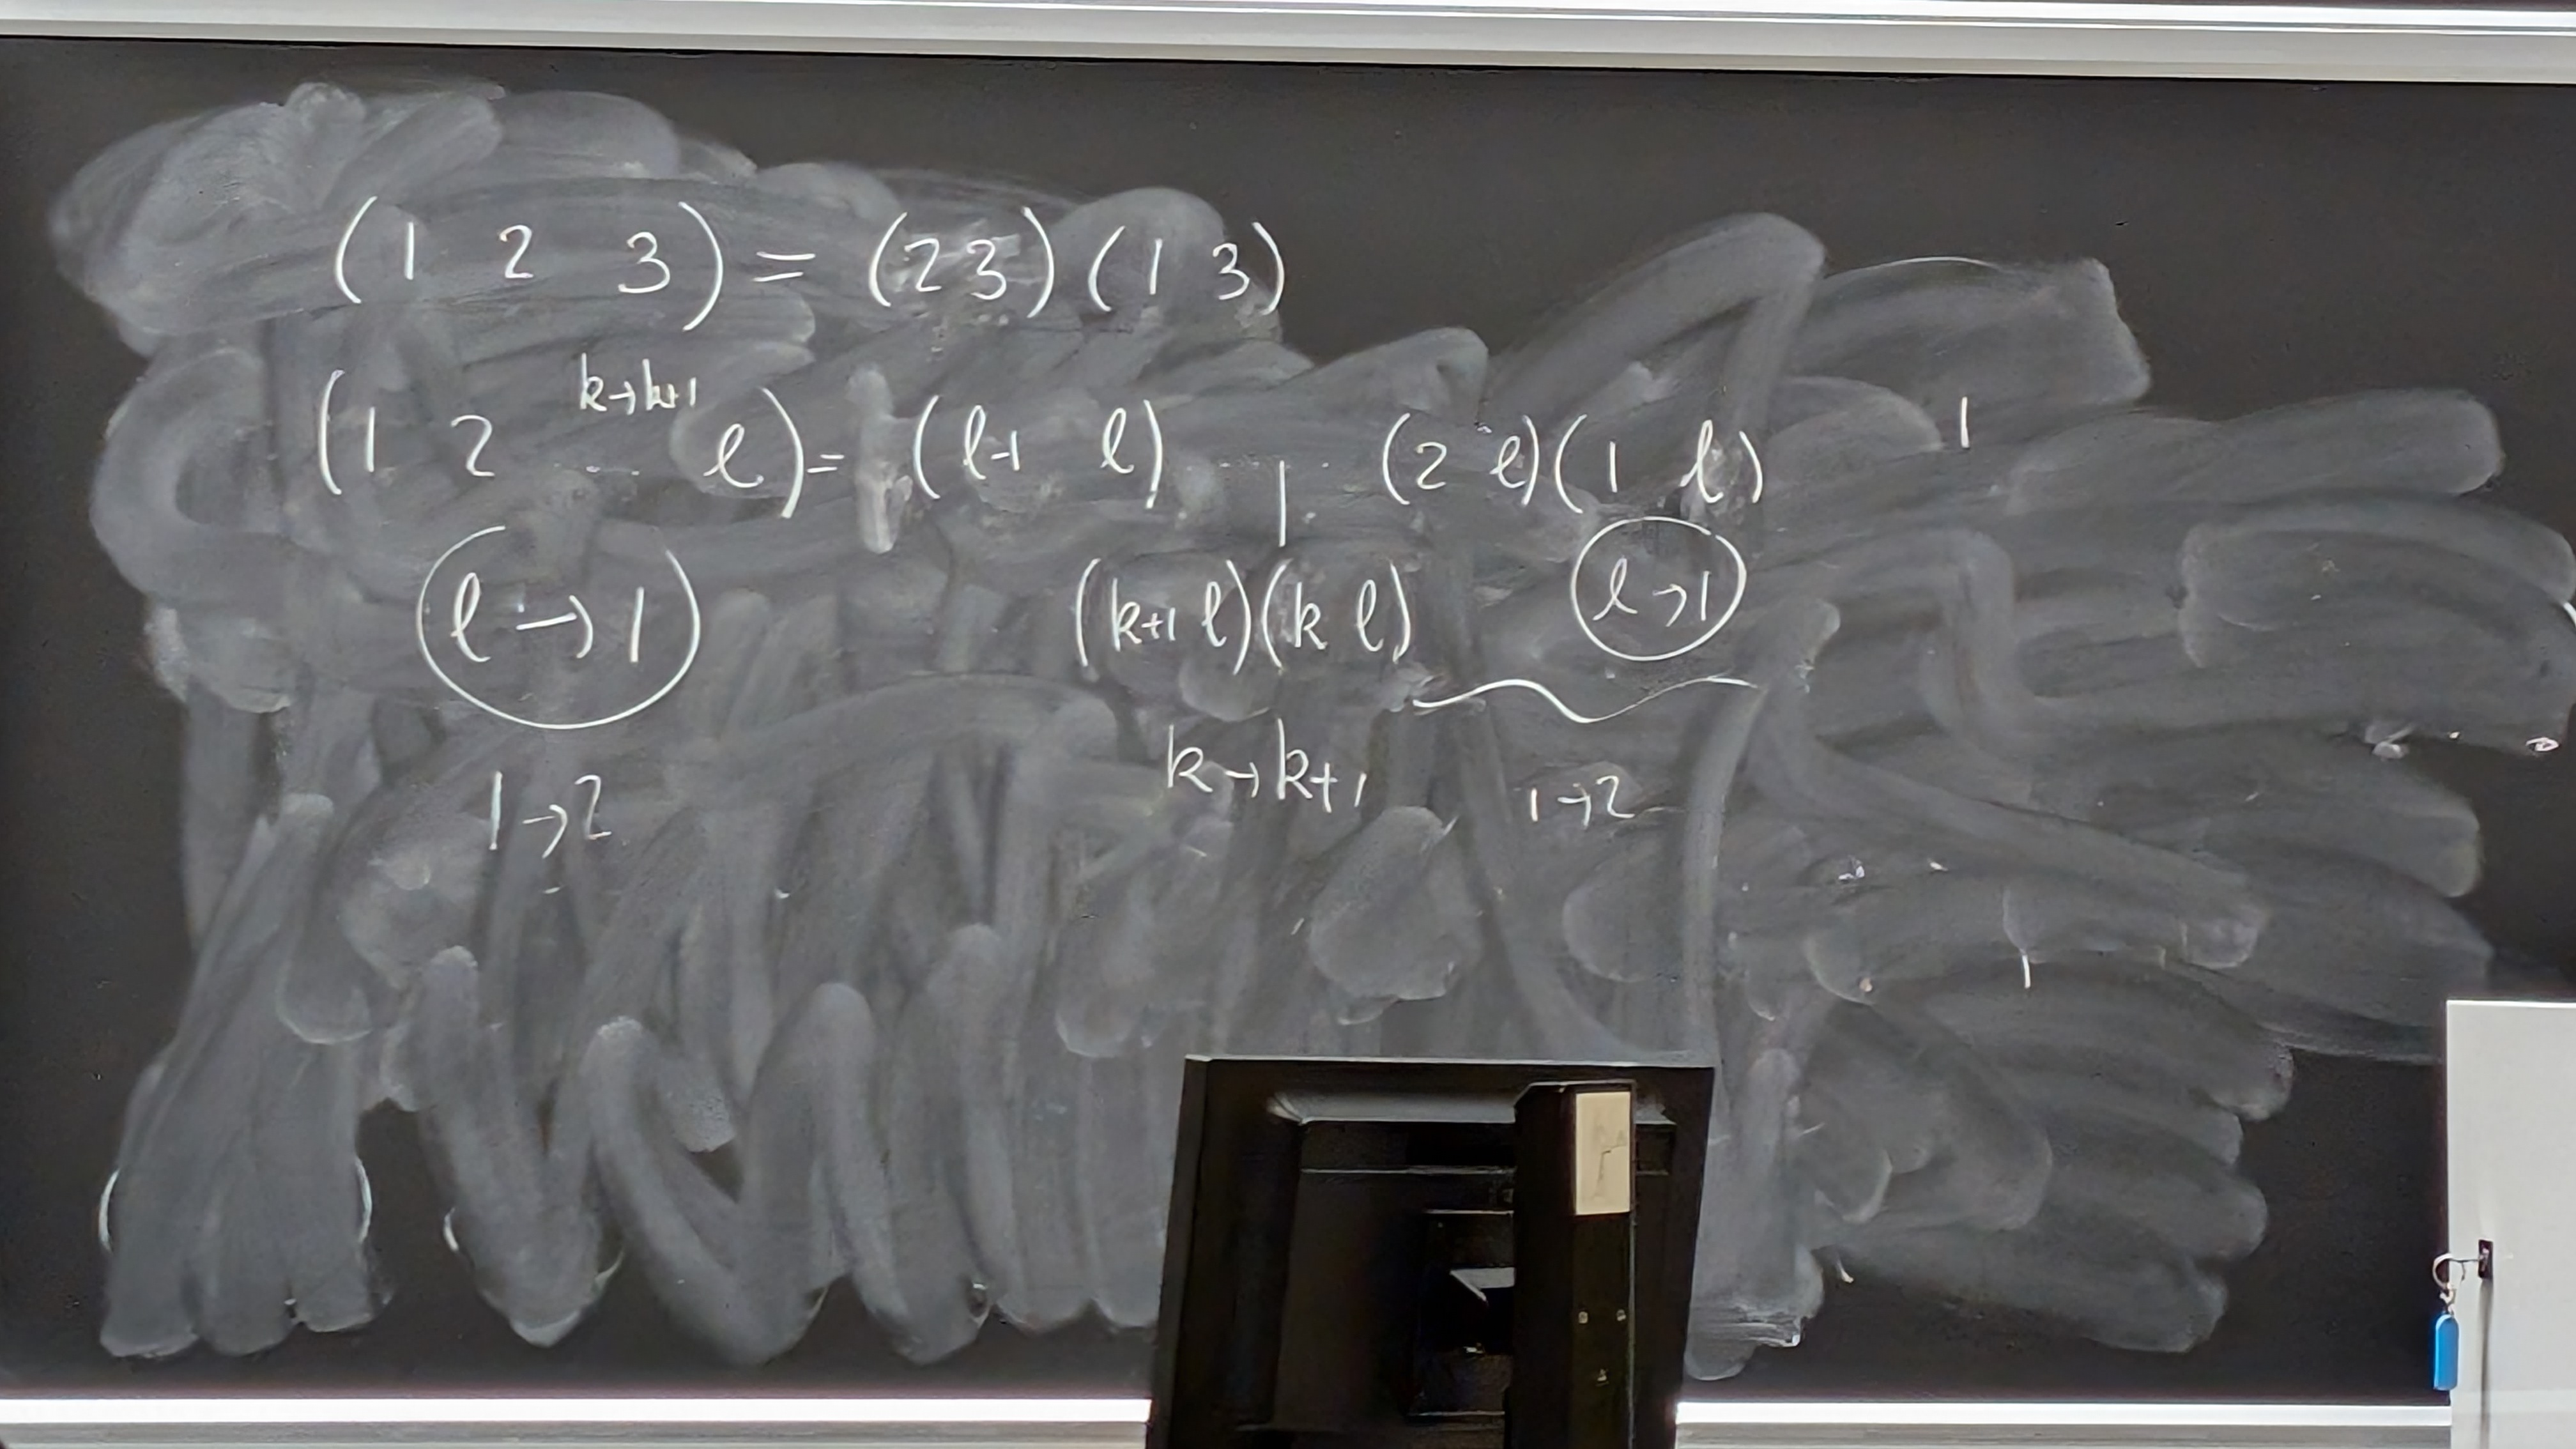 (1 2 3) = (2 3)(1 3)
k→k+1
(1 2 ... l) = (l-1 l) ..... (2 l)(1 l)
l→1 (k+1 l)(k l) l→1
1→2 k→k+1 1→2